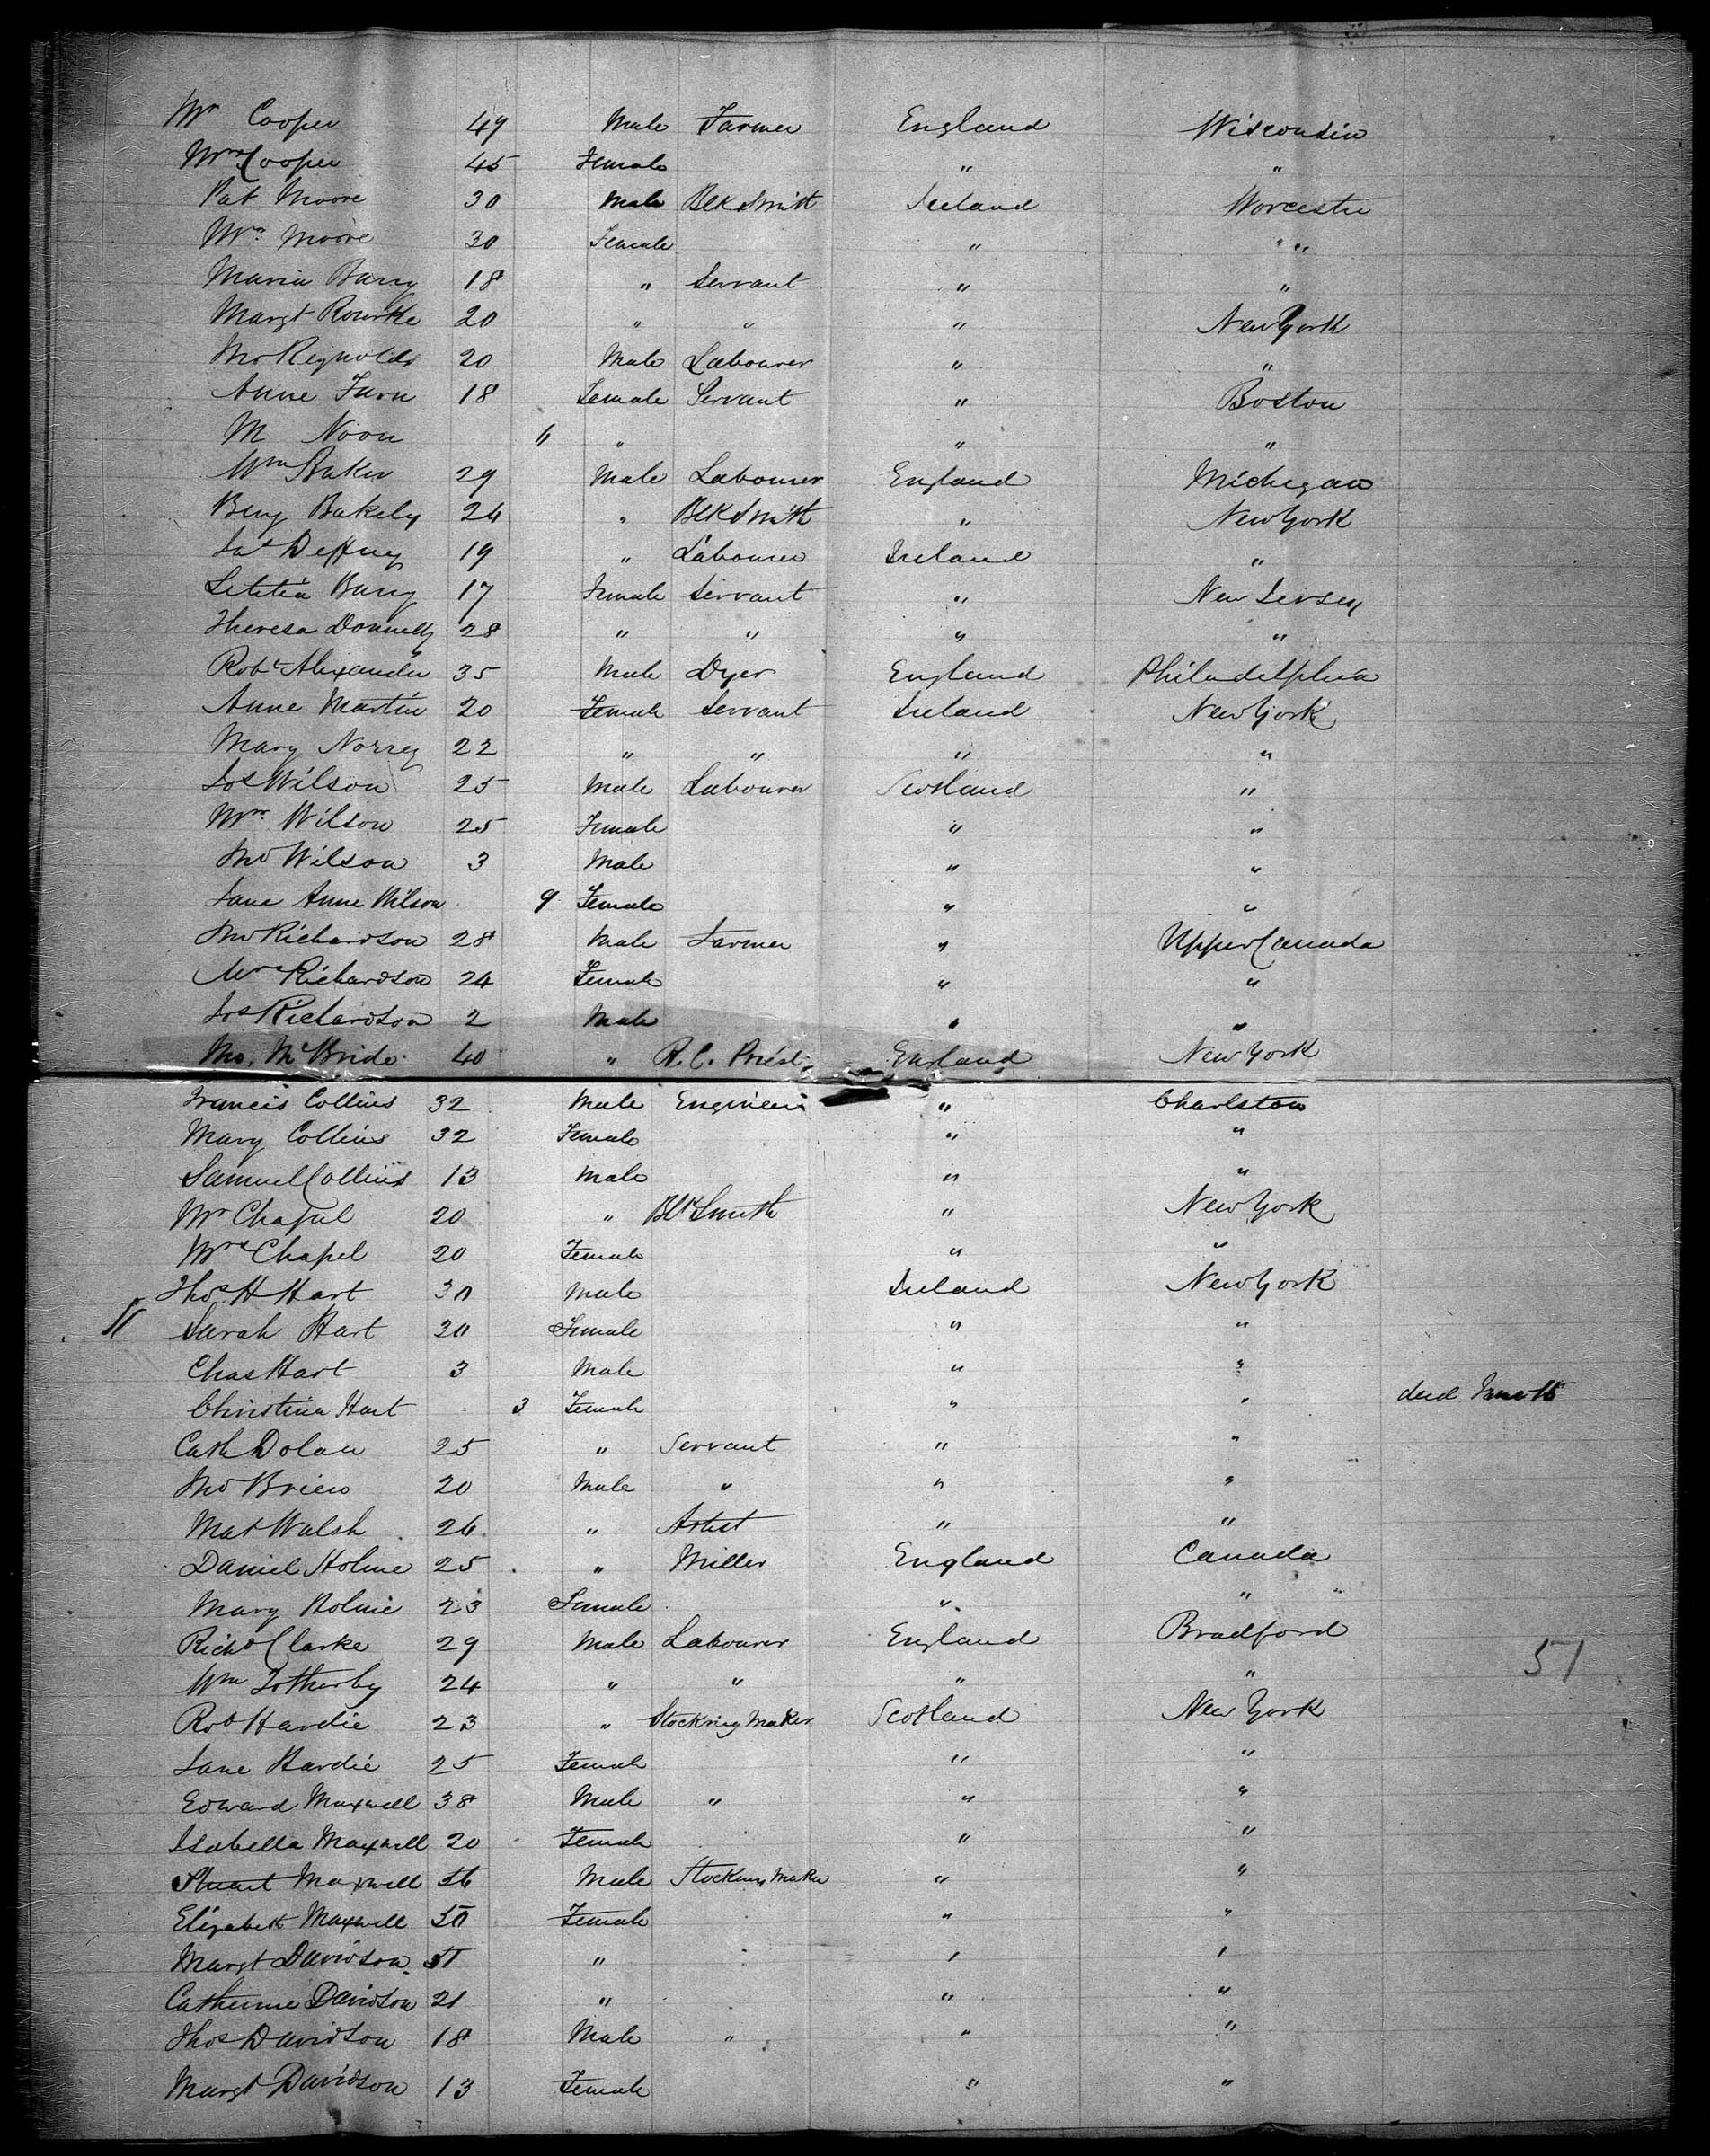 Mr Cooper 49 Male Farmer England Wisconsin
Mrs Cooper 45 Female " "
Pat Moore 30 Male Blk Smith Ireland Worcester
Mrs Moore 30 Female " "
Maria Barry 18 " Servant " "
Margt Rourke 20 " " " New York
Jno Reynolds 20 Male Labourer " "
Anne Farn 18 Female Servant " Boston
M Noon " " " "
Wm Baker 29 Male Labourer England Michigan
Benj Bakely 24 " Blk Smith " New York
Jas 19 " Labourer Ireland "
Letitia Barry 17 Female Servant " New Jersey
Theresa Donnelly 28 " " " "
Robt Alexander 35 Male Dyer England Philadelphia
Anne Martin 20 Female Servant Ireland New York
Mary Norrey 22 " " " "
Jos Wilson 25 Male Labourer Scotland "
Mrs Wilson 25 Female " "
Jno Wilson 3 Male " "
Jane Anne Wilson 9 Female " "
Jno Richardson 28 Male Farmer " Upper Canada
Mrs Richardson 24 Female " "
Jos Richardson 2 Male " "
McBride 40 " R. C. Priest England New York
Francis Collins 32 Male Engineer " Charlston
Mary Collins 32 Female " "
Samuel Collins 13 Male " "
Mr Chapel 20 " Blk Smith " New York
Mrs Chapel 20 Female " "
Thos H Hart 30 Male Ireland New York
Sarah Hart 30 Female " "
Chas Hart 3 Male " "
Christina Hart 3 Female " " died
Cath Dolan 25 " Servant " "
Jno Brien 20 Male " " "
Mat Walsh 26 " Artist " "
Daniel Holme 25 " Miller England Canada
Mary Holme 23 Female " " "
Richd Clarke 29 Male Labourer England Bradford
51
Wm Lotherby 24 " " " "
Robt Hardie 23 " Stocking Maker Scotland New York
Jane Hardie 25 Female " "
Edward Maxwell 38 Male " " "
Isabella Maxwell 20 Female " "
Stuart Maxwell 56 Male Stocking Maker " "
Elizabeth Maxwell 50 Female " "
Margt Davidson " " "
Catherine Davidson 21 " " "
Thos Davidson 18 Male " " "
Margt Davidson 13 Female " "